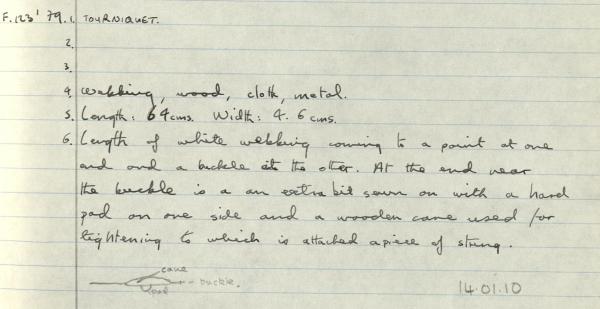 F.123' 79.1. TOURNIQUET.
2.
3.
4. Webbing, wood, cloth, metal.
5. Length: 64cms. Width: 4.6 cms.
6. Length of white webbing coming to a point at one
end and a buckle at the other. At the end near
the buckle is a an extra bit sewn on with a hard
pad on one side and a wooden cane used for
tightening to which is attached a piece of string.
cane
buckle.
14.01.10